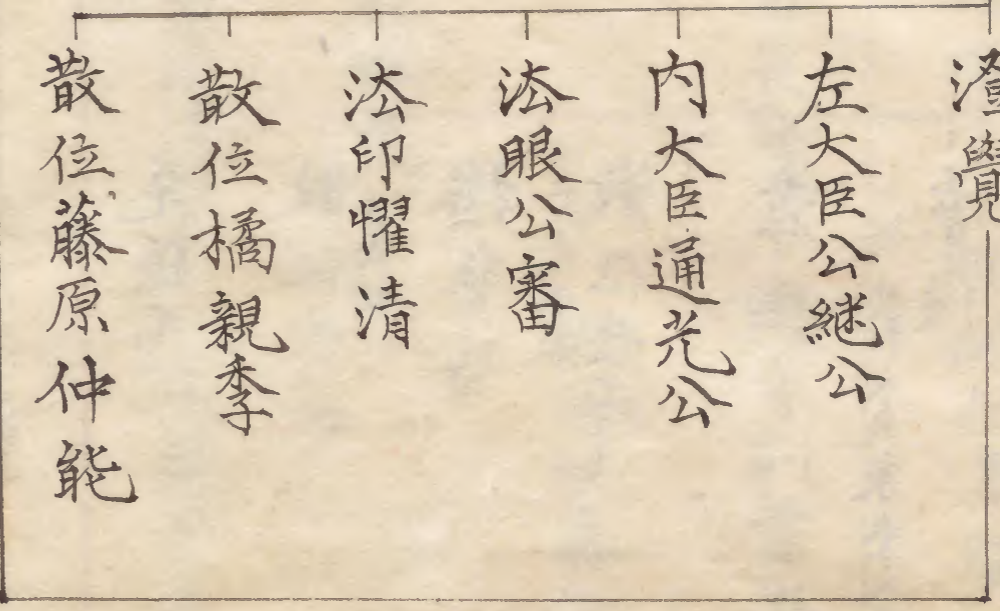 澄覺
左大臣公継公
内大臣通光公
法眼公審
法印懼清
散位橘親季
散位藤原仲能